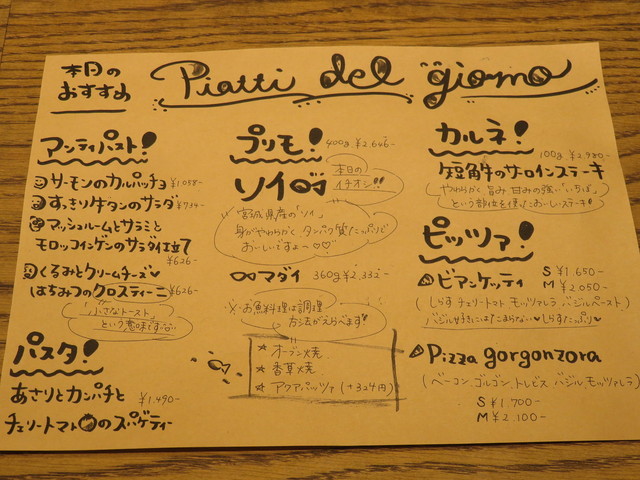 本日の
おすすめ
Piatti del giorno
アンティパースト!
サーモンのカルパッチョ ¥1,058-
すっきり牛タンのサラダ ¥734-
マッシュルームとサラミと
モロッコインゲンのサラダ仕立て
¥626-
くるみとクリームチーズ♥
はちみつのクロスティーニ ¥626-
小さなトースト
という意味です
パスタ!
あさりとカンパチと ¥1,490-
チェリートマトのスパゲティー
プリモ! 400g ¥2,646-
ソイ
本日の
イチオシ!!
宮城県産の「ソイ」
身がやわらかく タンパク質たっぷりで
おいしいですよ〜♡♡
マダイ 360g ¥2,332-
※お魚料理は調理
方法がえらべます!!
★ オーブン焼
★ 香草焼
★ アクアパッツァ (+324円)
カルネ!
100g ¥2,980-
短角牛のサーロインステーキ
やわらかく 旨み 甘みの強い「いちぼ」
という部位を使ったおいしいステーキ!
ピッツァ!
ビアンケッティ S ¥1,650-
M ¥2,050-
(しらす チェリートマト モッツァレラ バジルペースト)
バジル好きにはたまらない♥しらすたっぷり♥
Pizza gorgonzora
(ベーコン、ゴルゴン、トレビス バジル モッツァレラ)
S ¥1,700-
M ¥2,100-